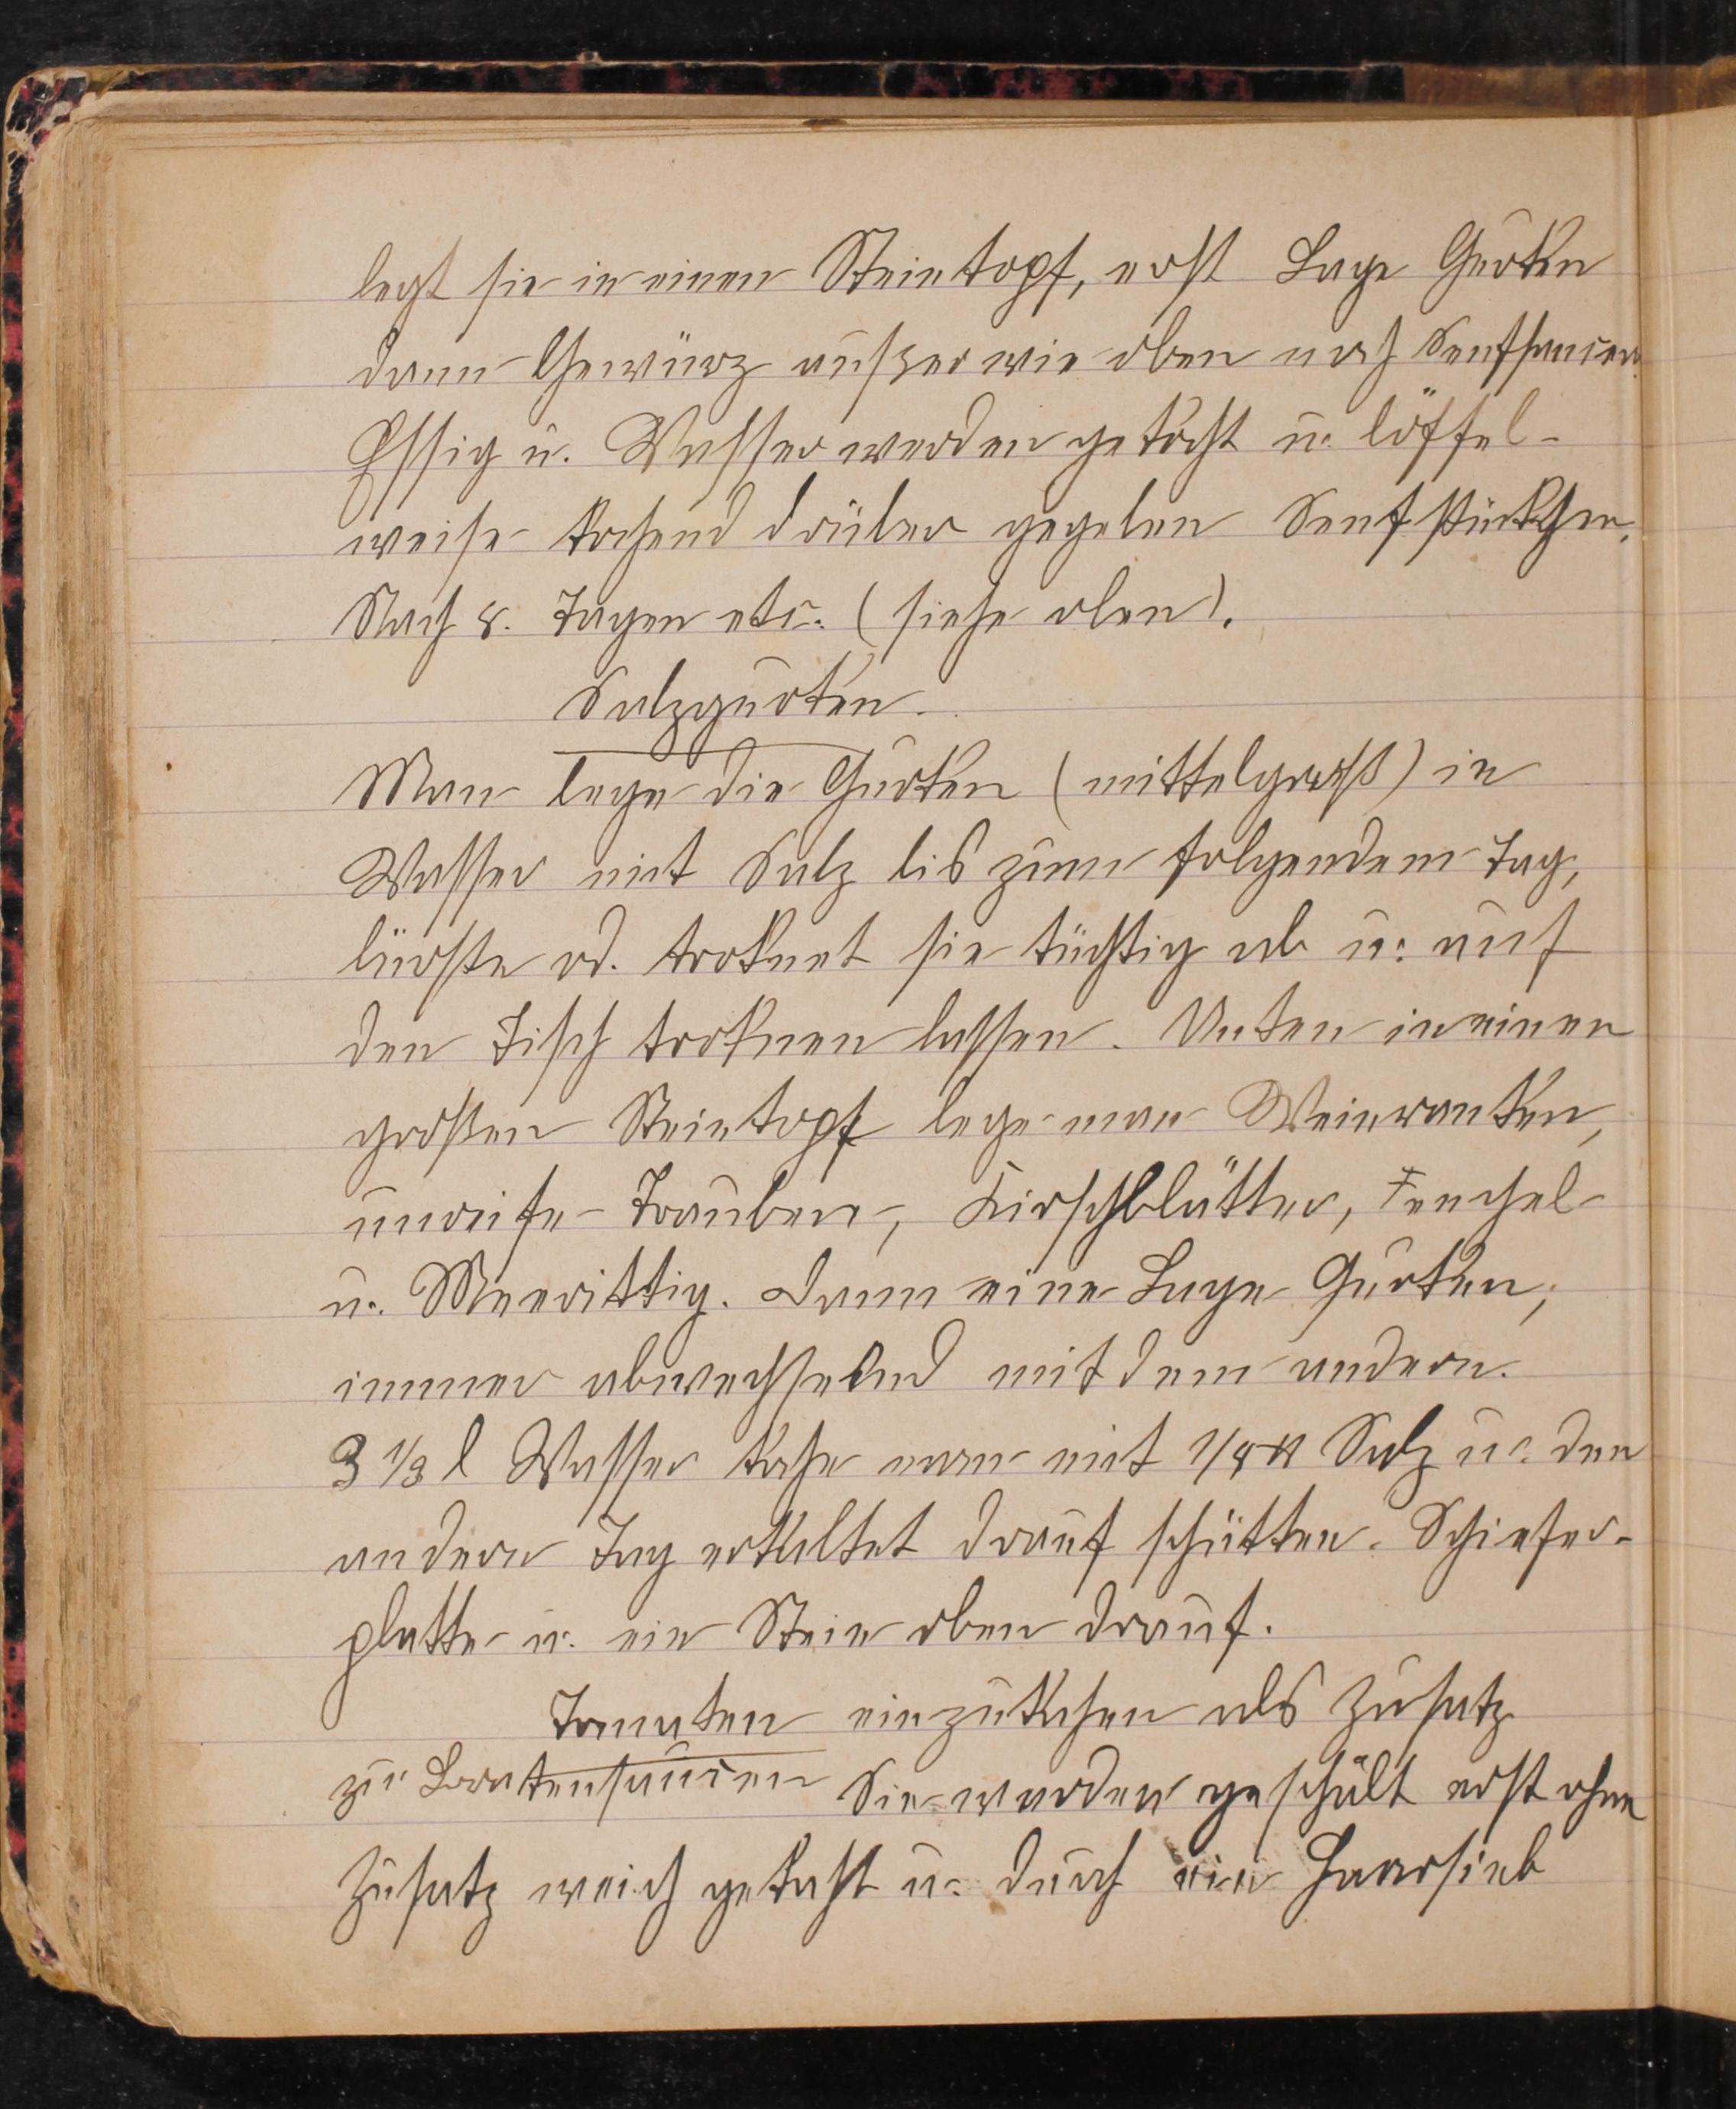 legt sie in einen Steintopf, erst Lage Gurken
dann Gewürz außer wie oben noch Senfsamen.
Essig u. Wasser werden gekocht u. löffel-
weise kochend drüber gegeben Senfstückchen.
Nach 8. Tagen etc. (siehe oben).
Salzgurken.
Man lege die Gurken (mittelgroß) in
Wasser mit Salz bis zum folgendem Tag,
bürste od. troknet sie tüchtig ab u. auf
den Tisch troknen lassen. Unten in einen
großen Steintopf lege man Weinranken,
unreife Trauben, Kirschblätter, Fenchel
u. Meerittig. Dann eine Lage Gurken,
immer abwechselnd mit dem andern.
3 1/3 l Wasser koche man mit 1/4 ℔ Salz u. den
andern Tag erkaltet drauf schütten. Schiefer-
platte u. ein Stein oben drauf.
Tomaten einzukochen als Zusatz
zu Bratensaucen Sie werden geschält erst ohne
Zusatz weich gekocht u. durch ein Haarsieb